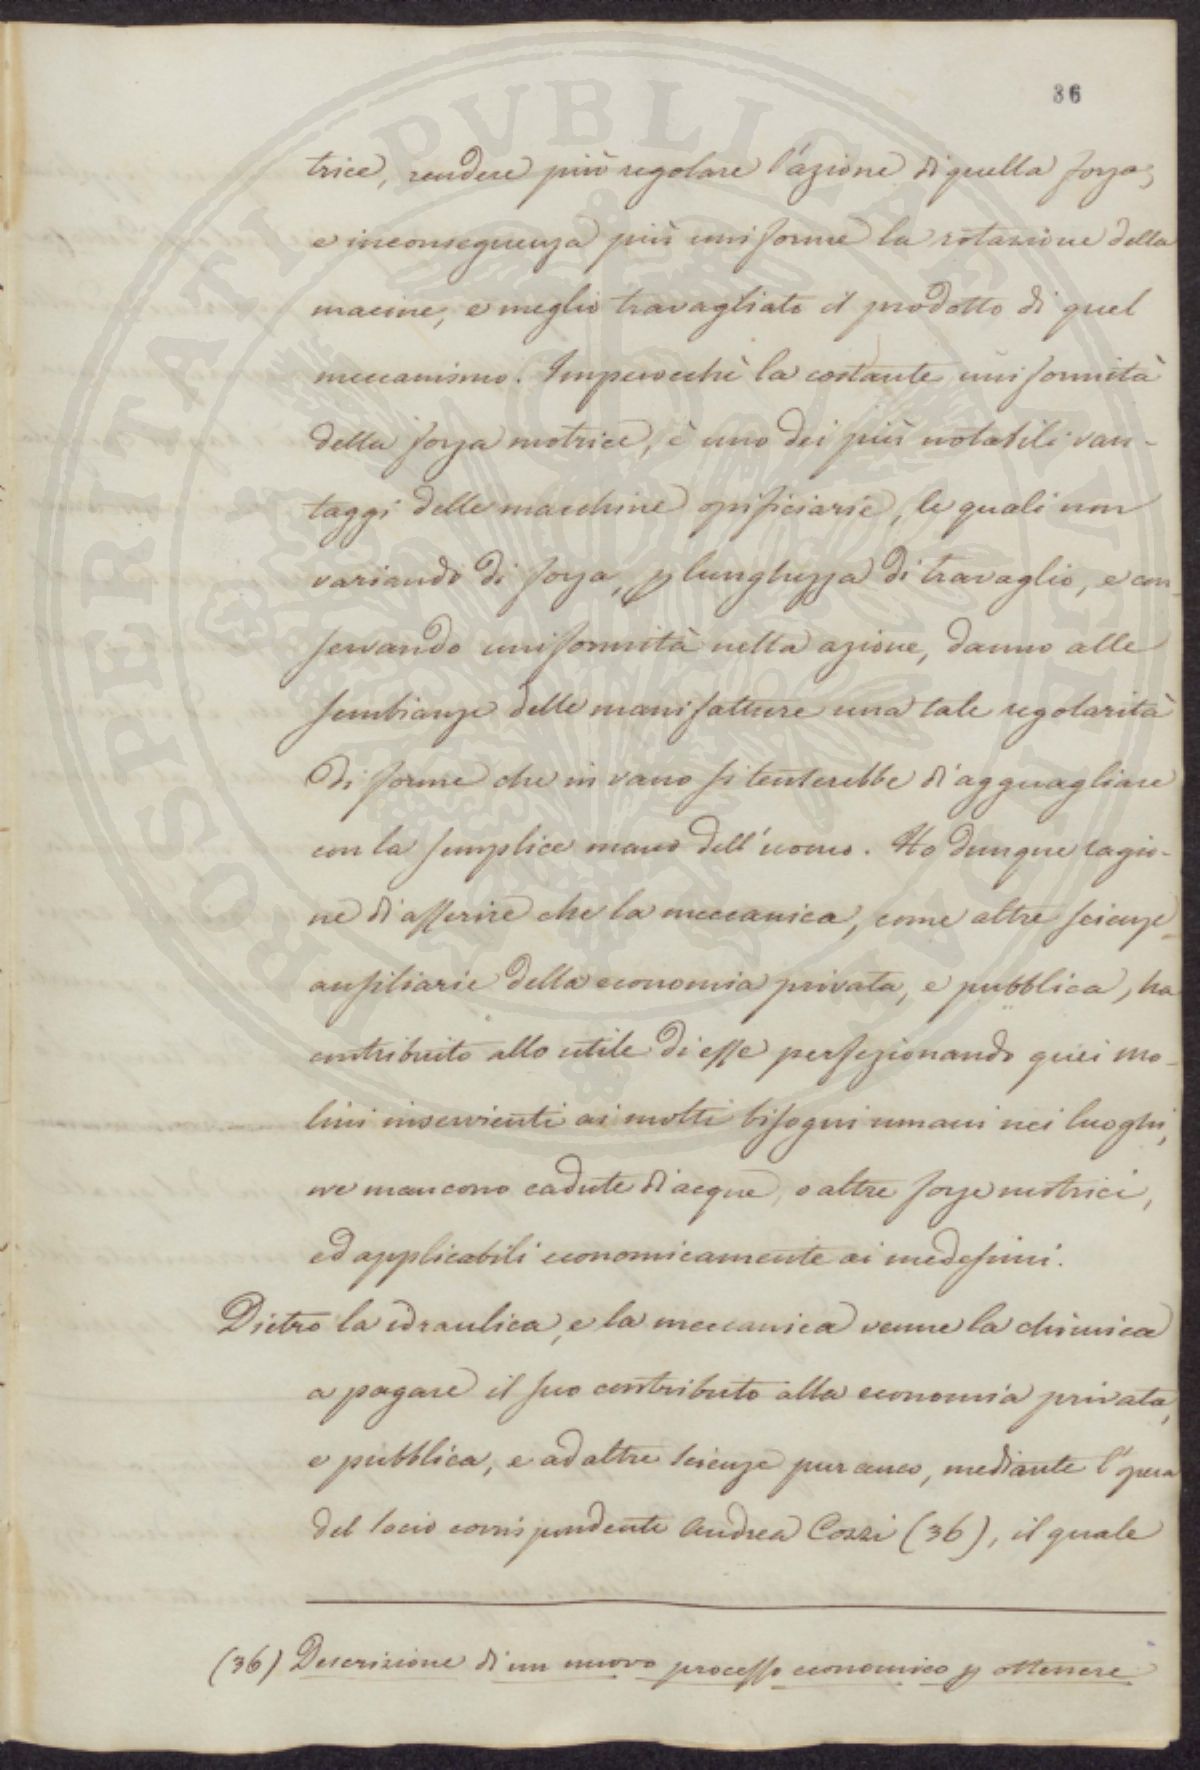 36
trice, rendere più regolare l'azione di quella forza,
e inconseguenza più uniforme la rotazione della
macine, e meglio travagliato il prodotto di quel
meccanismo. Imperocchè la costante uniformità
della forza motrice, è uno dei più notabili van-
taggi delle macchine opificiarie, le quali non
variando di forza, p lunghezza di travaglio, e con-
servando uniformità nella azione, danno alle
sembianze delle manifatture una tale regolarità
di forme che in vano si tenterebbe di agguagliare
con la semplice mano dell'uomo. Ho dunque ragio-
ne di asserire che la meccanica, come altre scienze
ausiliarie della economia privata, e pubblica, ha
contribuito allo utile di esse perfezionando quei mo-
lini inservienti ai molti bisogni umani nei luoghi,
ove mancono cadute di acque, o altre forze motrici,
ed applicabili economicamente ai medesimi.
Dietro la idraulica, e la meccanica venne la chimica
a pagare il suo contributo alla economia privata,
e pubblica, e ad altre scienze pur anco, mediante l'opera
del socio corrispondente Andrea Cozzi (36), il quale
(36) Descrizione di un nuovo processo economico p ottenere
PROSPERITATI PVBLICAE AVGENDAE